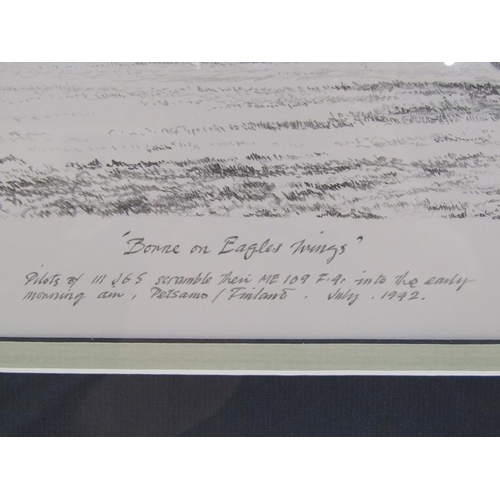 "Borne on Eagles Wings"
Pilots of III JG5 scramble their ME 109 F-4s into the early
morning air, Petsamo / Finland. July. 1942.